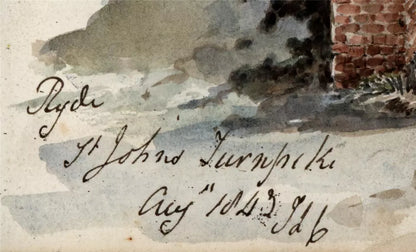 Ryde
St Johns Turnpike
Augst 1843